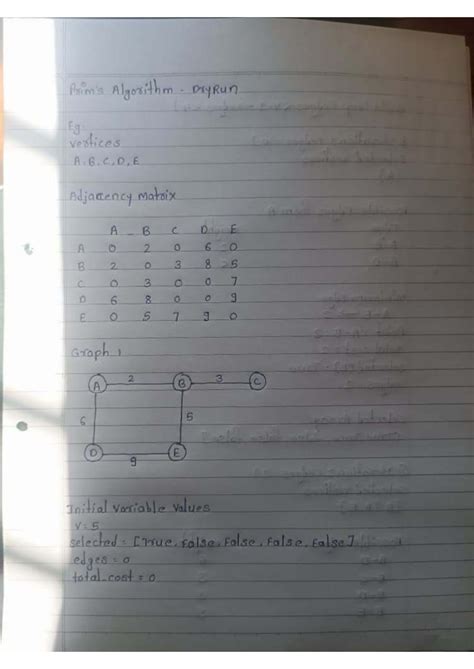 Prim's Algorithm - DryRun
Eg.
vertices
A, B, C, D, E
Adjacency matrix
A - B C D E
A 0 2 0 6 0
B 2 0 3 8 5
C 0 3 0 0 7
D 6 8 0 0 9
E 0 5 7 9 0
Graph 1
A 2 B 3 C
6 5
D 9 E
Initial variable values
V = 5
selected = [True, False, False, False, False]
edges = 0
total_cost = 0